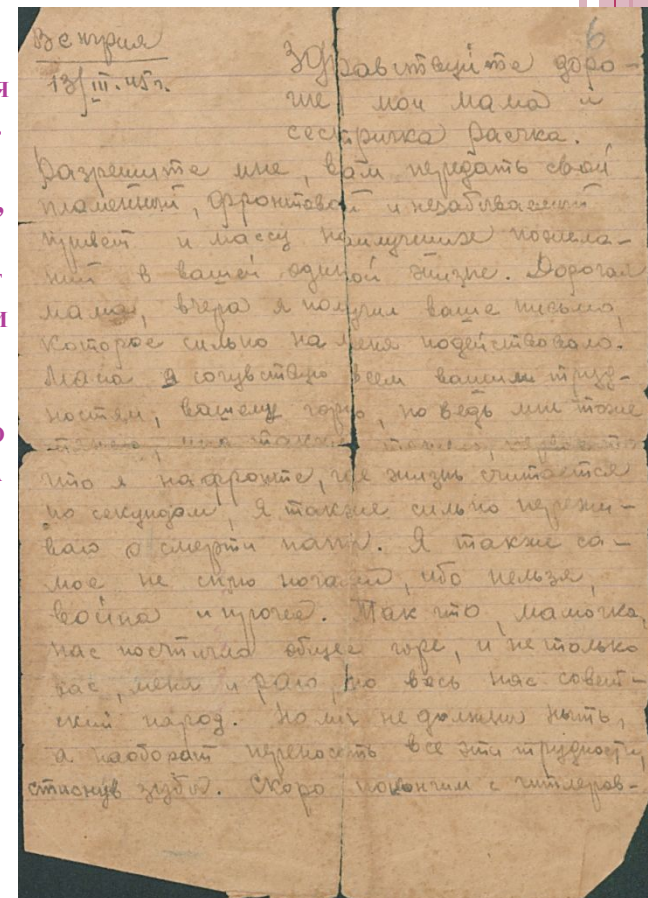 6
Венгрия
13/III.45г.
Здравствуйте доро-
гие мои мама и
сестричка Раечка.
Разрешите мне, вам передать свой
пламенный, фронтовой и незабываемый
привет и массу наилучших пожела-
ний в вашей одинокой жизне. Дорогая
мама, вчера я получил ваше письмо,
которое сильно на меня подействовало.
Мама я сочувствую всем вашим труд-
ностям, вашему горю, но ведь мне тоже
что я на фронте, где жизнь считается
по секундам, я также сильно пережи-
ваю о смерти папы. Я также са-
мое не сплю ночами, ибо нельзя,
война и прочее. Так что, мамочка,
нас постигло общее горе, и не только
вас, меня и раю, но весь наш совет-
ский народ. Но мы не должны ныть,
а наоборот переносить все эти трудности,
стиснув зубы. Скоро покончим с гитлеров-
я
и
о